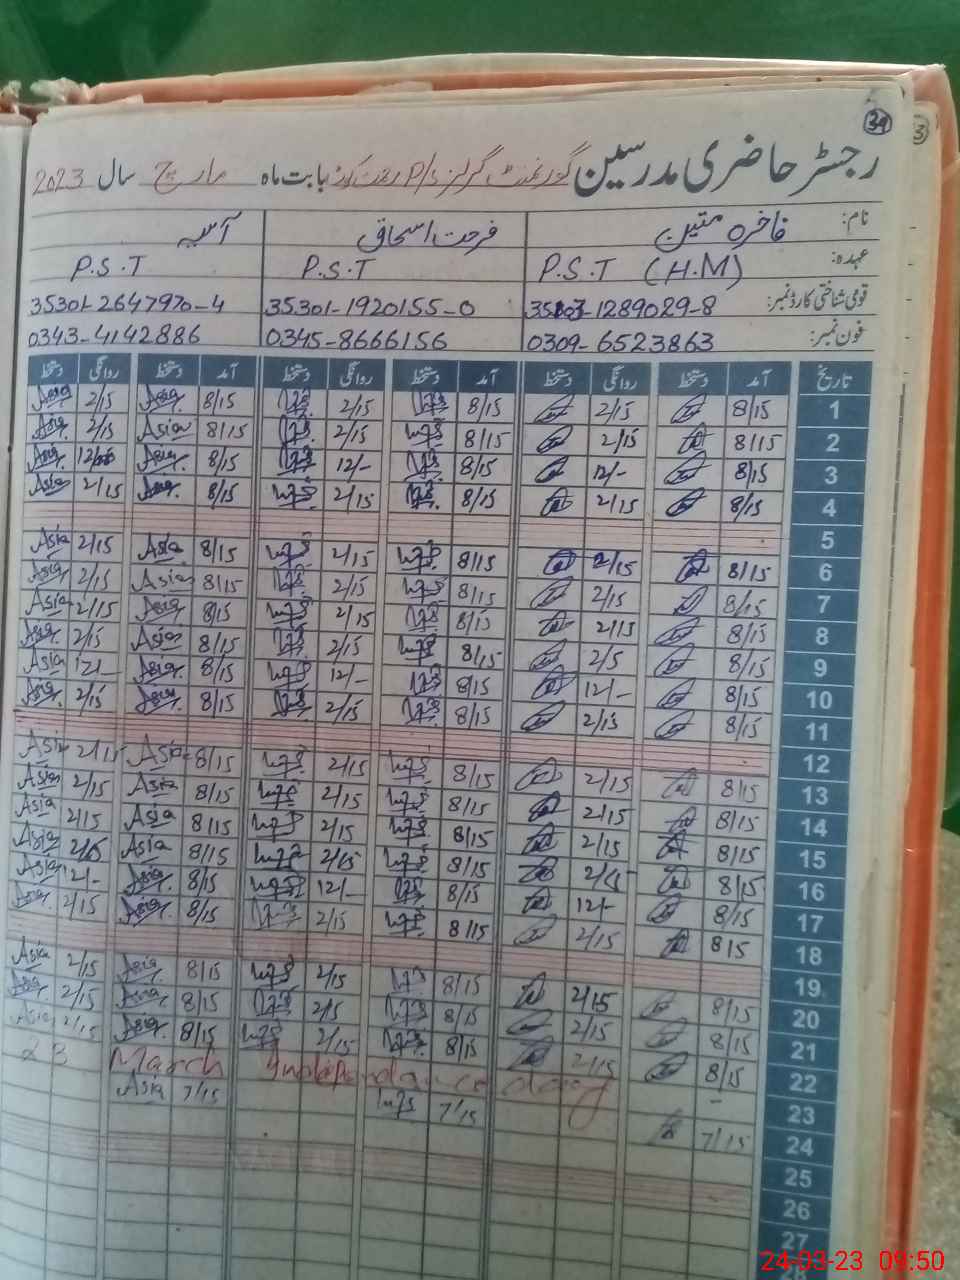 34
رجسٹر حاضری مدرسین گورنمنٹ گرلز P/S بابت ماہ مارچ سال 2023
نام: فاخرہ متین فرحت اسحاق آسیہ
عہدہ: P.S.T (H.M) P.S.T P.S.T
قومی شناختی کارڈ نمبر: 1289029-8 35301-1920155-0 35301-2647970-4
فون نمبر: 0309-6523863 0345-8666156 0343-4142886
تاریخ آمد دستخط روانگی دستخط آمد دستخط روانگی دستخط آمد دستخط روانگی دستخط
1 8/15 2/15 8/15 2/15 8/15 2/15
2 8/15 2/15 8/15 2/15 8/15 Asia 2/15
3 8/15 12/- 8/15 12/- 8/15
4 8/15 2/15 8/15 2/15 8/15 2/15
5
6 8/15 2/15 8/15 2/15 8/15 Asia 2/15 Asia
7 8/15 2/15 8/15 2/15 8/15 Asia 2/15 Asia
8 8/15 2/15 8/15 2/15 8/15 Asia 2/15 Asia
9 8/15 2/5 8/15 2/15 8/15 Asia 2/15 Asia
10 8/15 12/- 8/15 12/- 8/15 Asia 12/- Asia
11 8/15 2/15 8/15 2/15 8/15 2/15
12
13 8/15 2/15 8/15 2/15 8/15 Asia 2/15 Asia
14 8/15 2/15 8/15 2/15 8/15 Asia 2/15 Asia
15 8/15 2/15 8/15 2/15 8/15 Asia 2/15 Asia
16 8/15 8/15 2/15 8/15 Asia 2/15 Asia
17 8/15 12/- 8/15 12/- 8/15 Asia 12/- Asia
18 8/15 2/15 8/15 2/15 8/15 Asia 2/15 Asia
19
20 8/15 2/15 8/15 2/15 8/15 Asia 2/15 Asia
21 8/15 2/15 8/15 2/5 8/15 Asia 2/15 Asia
22 8/15 2/15 8/15 2/15 8/15 Asia 2/15 Asia
23 23 March Independance day
24 7/15 7/15 7/15 Asia
25
26
27
28
24-03-23 09:50